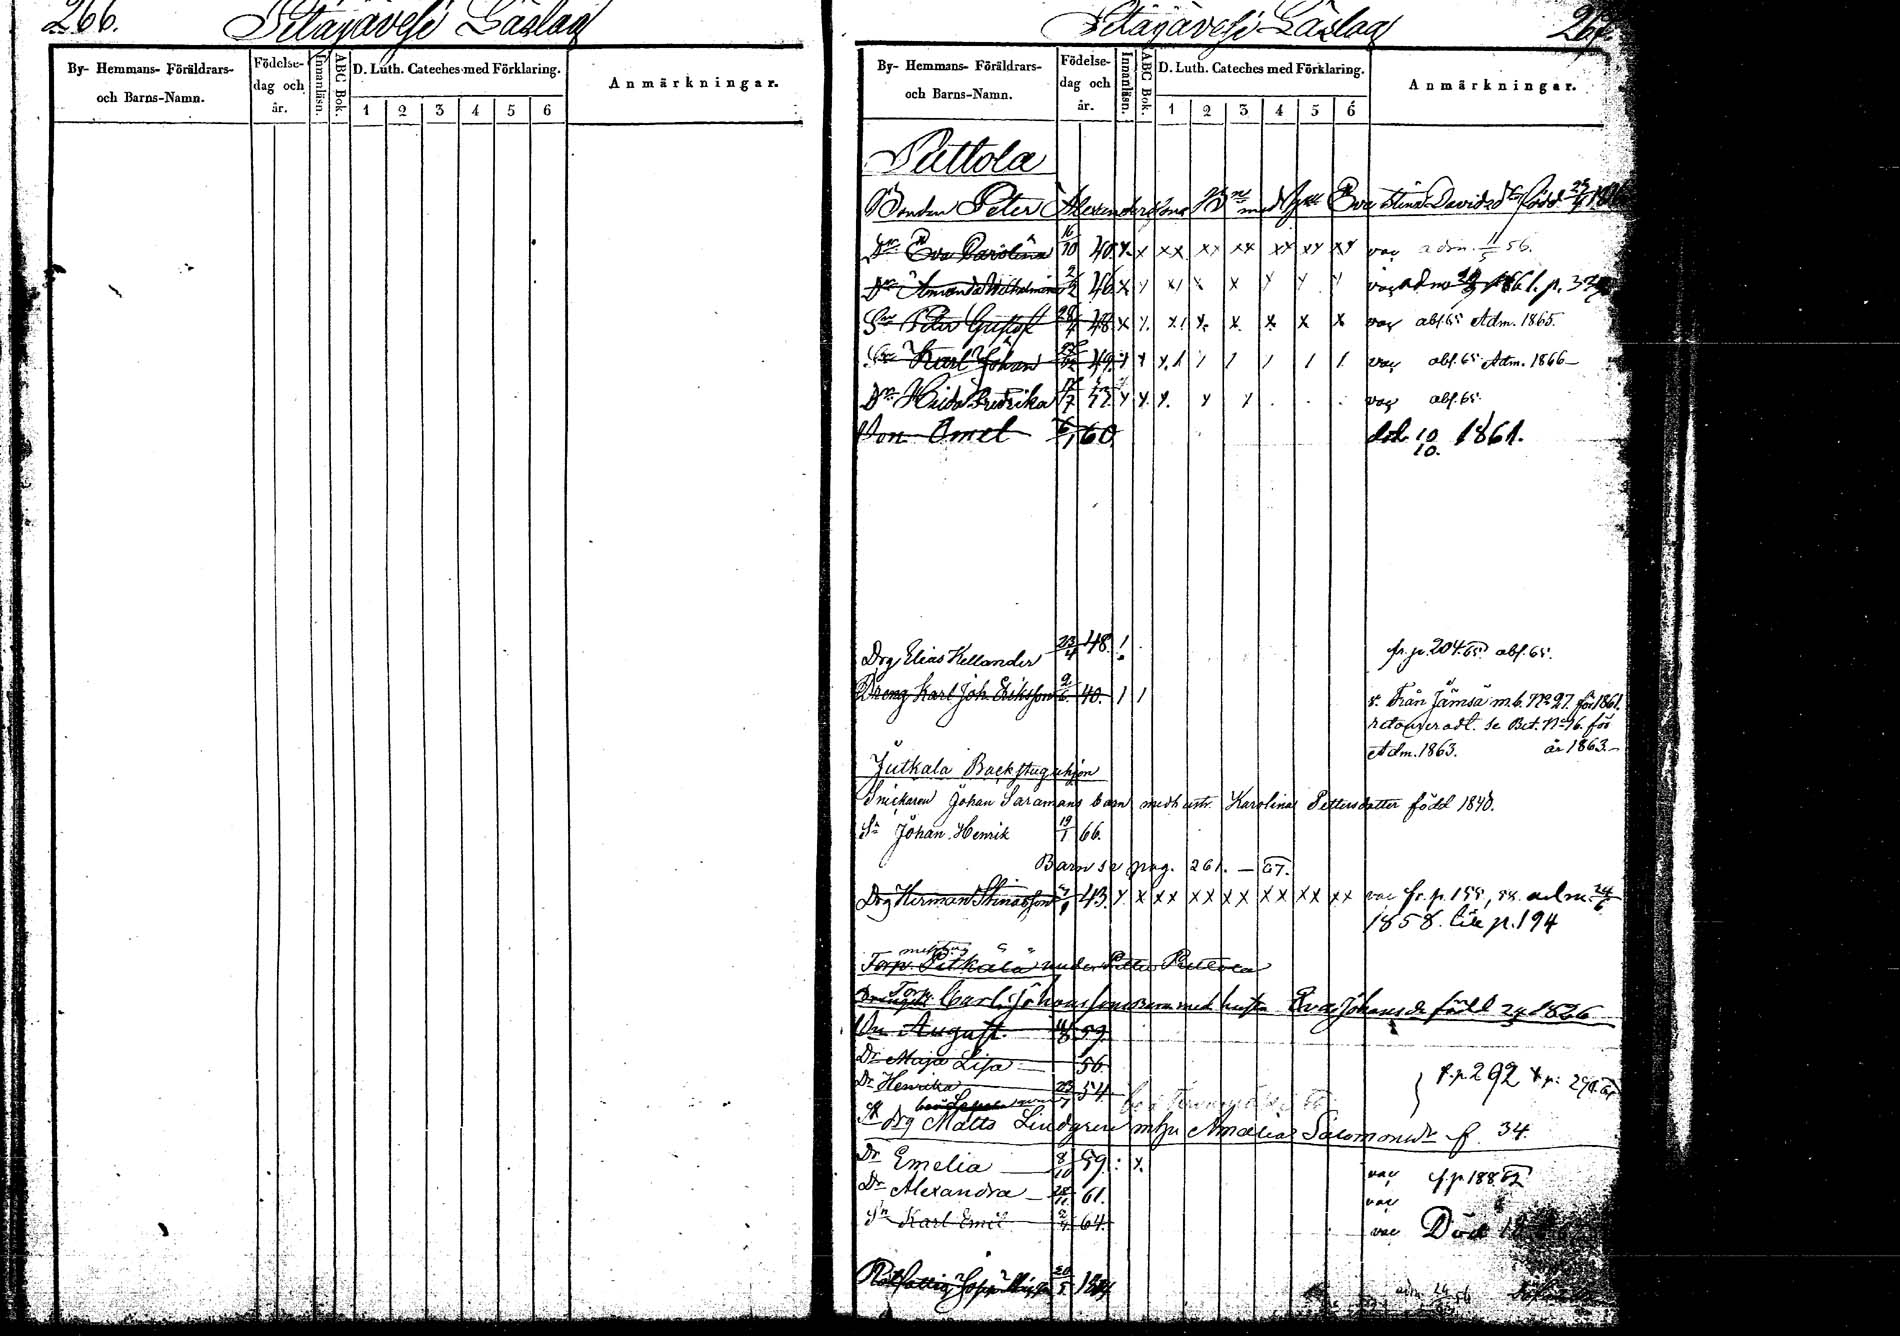 266. Petäjävesi Läslag
By- Hemmans- Föräldrars- och Barns-Namn. Födelse- dag och år. Innanläsn. ABC Bok. D. Luth. Cateches med Förklaring. 1 2 3 4 5 6 Anmärkningar.
Petäjävesi Läslag 267.
By- Hemmans- Föräldrars- och Barns-Namn. Födelse- dag och år. Innanläsn. ABC Bok. D. Luth. Cateches med Förklaring. 1 2 3 4 5 6 Anmärkningar.
Puttola
Bonden Peter Alexanderssons Bn med Eva Stina Davidsd. född
Dr Eva Carolina 16/10 40. x x xx xx xx xx xx xx vac adm. 11/5 56.
Dr Amanda Wilhelmina 2/2 46 vac adm 1861. p.
Sn Peter Gustaf 28/4 48 x x vac abs. 65 Adm. 1865.
Sn Karl Johan 49. vac abs. 65 Adm. 1866
Dr Hilda Fredrika 17/7 vac abs. 65.
Son Emel 6/1 60. död 10/10. 1861.
Drg Elias Kellander 23/4 48. fr. p. 204. 65 abs. 65.
Dreng Karl Joh. Eriksson 2/6 40. Från Jämsä m.b. No 27. för 1861.
retourneradt. se Bet. No 16. för
Adm. 1863. år 1863.
Jutkala Backstuguhjon
Snickaren Johan Saramans barn med hustr. Karolina Pettersdatter född 1840.
Sn Johan Henrik 19/1 66.
Barn se pag. 261. — 67.
Drg Herman Stinasson 43. x x xx xx xx xx xx xx vac fr. p. 155, 58. adm. 24/6
1858. till p. 194
Torp. Pitkälä under Petter Puttola
Torp. Carl Johanssons barn med hustru Eva Johansdr född 1826
Sn August 59.
Dr Maja Lisa 56
Dr Henrika 23/7 54. f. p. 292
drg Matts Lindgren m hu Amalia Salomonsdr f. 34.
Dr Emelia 8/10 59. x vac f. p. 188 62
Dr Alexandra 28/11 61. vac
Sn Karl Emil 2/4 64. vac Död
20/5